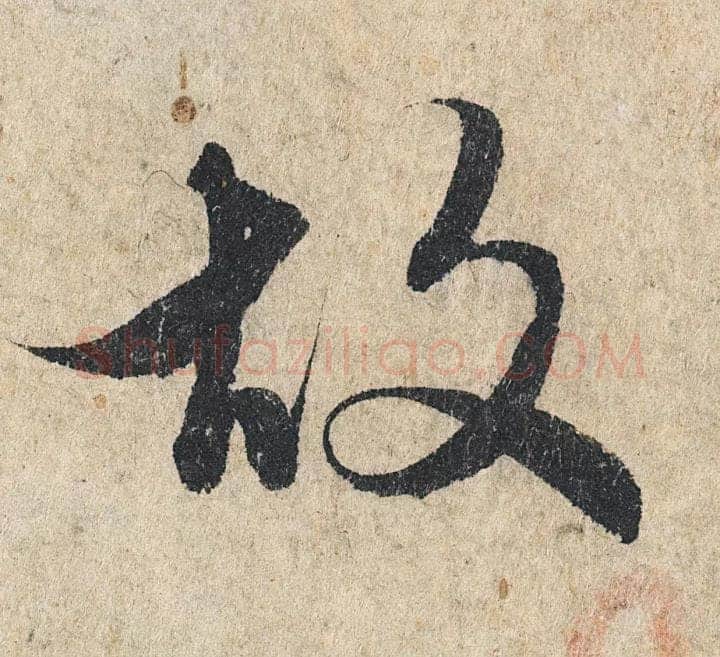 故
Shufaziliao.COM